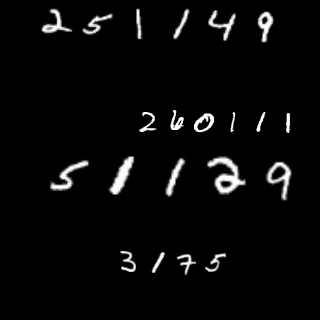 251149
260111
51129
3175